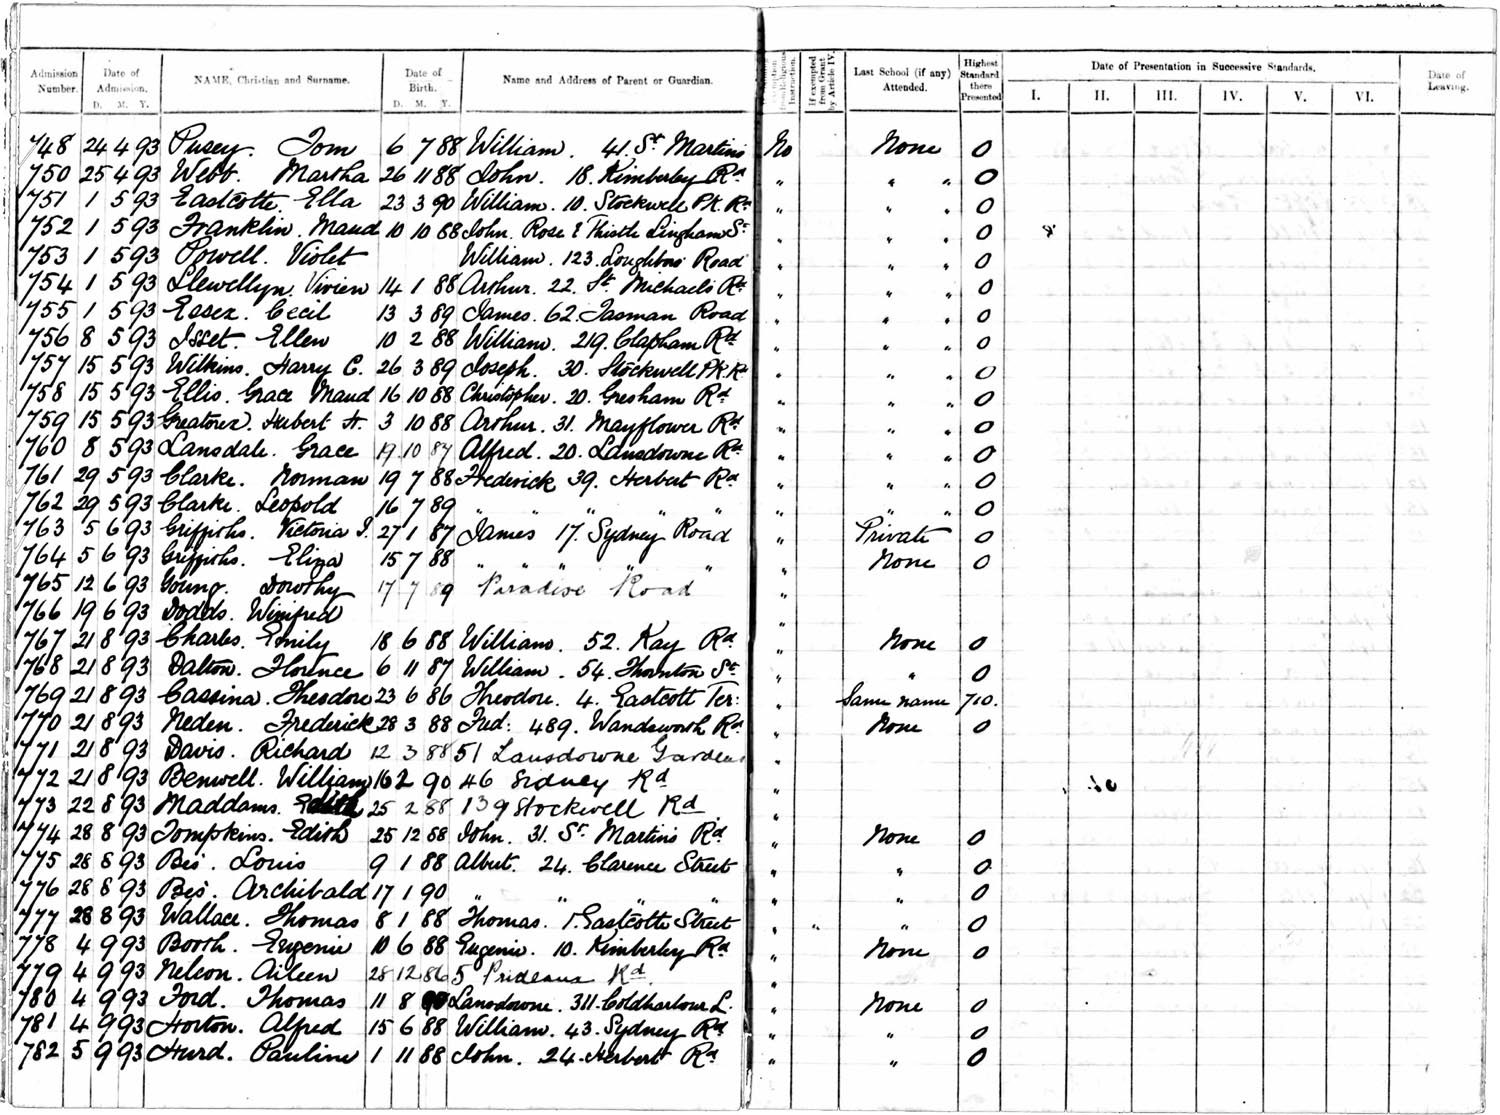 Admission Number. Date of Admission. D. M. Y. NAME, Christian and Surname. Date of Birth. D. M. Y. Name and Address of Parent or Guardian. Instruction. If exempted from Grant by Article IV. Last School (if any) Attended. Highest Standard there Presented Date of Presentation in Successive Standards. I. II. III. IV. V. VI. Date of Leaving.
748 24 4 93 Pusey. Tom 6 7 88 William. 41. St Martins No None 0
750 25 4 93 Webb. Martha 26 11 88 John. 18. Kimberley Rd " " " 0
751 1 5 93 Eastcott Ella 23 3 90 William. 10. Stockwell Pk. Rd " " " 0
752 1 5 93 Franklin. Maud 10 10 88 John. Rose & Thistle Lingham St " " " 0
753 1 5 93 Powell. Violet William. 123. Loughboro' Road " " " 0
754 1 5 93 Llewellyn. Vivien 14 1 88 Arthur. 22. St. Michael's Rd " " " 0
755 1 5 93 Essex. Cecil 13 3 89 James. 62. Tasman Road " " " 0
756 8 5 93 Isset. Ellen 10 2 88 William. 219. Clapham Rd " " " 0
757 15 5 93 Wilkins. Harry C. 26 3 89 Joseph. 30. Stockwell Pk. Rd " " " 0
758 15 5 93 Ellis. Grace Maud 16 10 88 Christopher. 20. Gresham Rd " " " 0
759 15 5 93 Greatorex. Hubert H. 3 10 88 Arthur. 31. Mayflower Rd " " " 0
760 8 5 93 Lansdale. Grace 19 10 87 Alfred. 20. Lansdowne Rd " " " 0
761 29 5 93 Clarke. Norman 19 7 88 Frederick 39. Herbert Rd " " " 0
762 29 5 93 Clarke. Leopold 16 7 89 " " " " " " " 0
763 5 6 93 Griffiths. Victoria J. 27 1 87 James 17. Sydney Road " Private 0
764 5 6 93 Griffiths. Eliza 15 7 88 " " " " " " None 0
765 12 6 93 Young. Dorothy 17 7 89 Paradise Road "
766 19 6 93 Dodds. Winifred "
767 21 8 93 Charles. Emily 18 6 88 William. 52. Kay Rd. " None 0
768 21 8 93 Dalton. Florence 6 11 87 William. 54. Thornton St. " " 0
769 21 8 93 Cassina. Theodore 23 6 86 Theodore. 4. Eastcott Ter: " Same name 710.
770 21 8 93 Neden. Frederick 28 3 88 Fred: 489. Wandsworth Rd. " None 0
771 21 8 93 Davis. Richard 12 3 88 51 Lansdowne Gardens "
772 21 8 93 Benwell. William 16 2 90 46 Sidney Rd "
773 22 8 93 Maddams. 25 2 88 139 Stockwell Rd "
774 28 8 93 Tompkins. Edith 25 12 88 John. 31. St. Martin's Rd. " None 0
775 28 8 93 Bés. Louis 9 1 88 Albert. 24. Clarence Street " " 0
776 28 8 93 Bés. Archibald 17 1 90 " " " " " " 0
777 28 8 93 Wallace. Thomas 8 1 88 Thomas. 1. Eastcott Street " " " 0
778 4 9 93 Booth. Eugenie 10 6 88 Eugenie. 10. Kimberley Rd " None 0
779 4 9 93 Nelson. Aileen 28 12 86 5 Prideaux Rd. "
780 4 9 93 Ford. Thomas 11 8 Lansdowne. 311. Coldharbour L. " None 0
781 4 9 93 Horton. Alfred 15 6 88 William. 43. Sydney Rd " " 0
782 5 9 93 Hurd. Pauline 1 11 88 John. 24. Herbert Rd " " 0